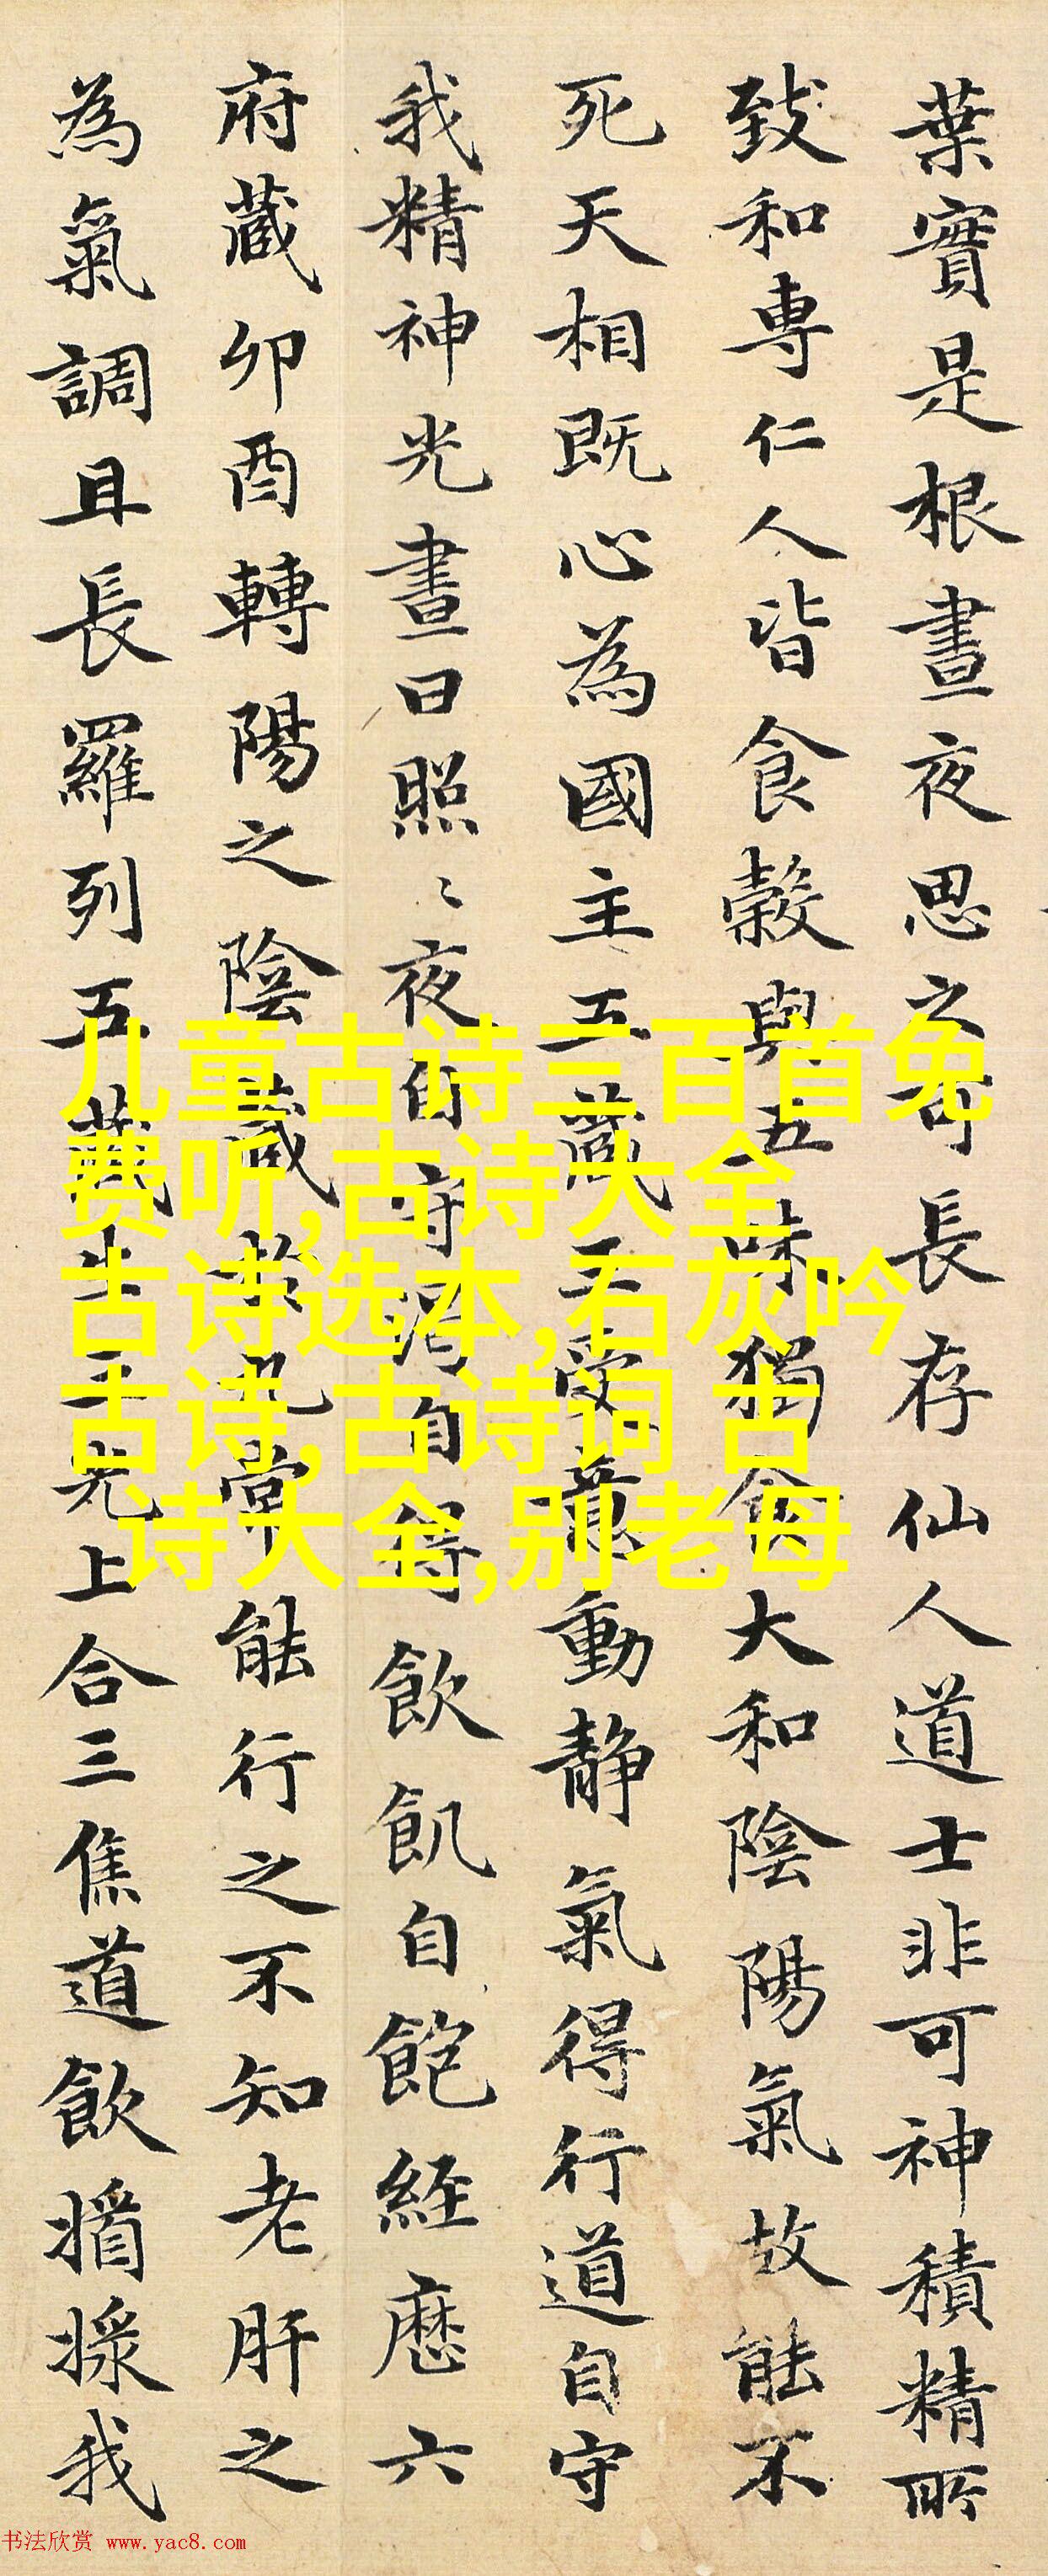 葉實是根晝夜思之可長存仙人道士非可神積精所
致和專仁人皆食穀與五味獨食大和陰陽氣故能不
死天相既心為國主五藏王受意動静氣得行道自守
我精神光晝日照〻夜自守渴自得飲飢自飽經歷六
府藏卯酉轉陽之陰藏於九常能行之不知老肝之
為氣調且長羅列五藏生三光上合三焦道飲漿我
儿童古诗三百首免
费听,古诗大全
古诗选本,石灰吟
古诗,古诗词 古
诗大全,别老母
书法欣赏 www.yac8.com